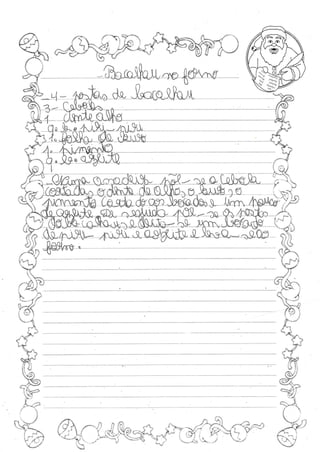 - Bacalhau no forno
- 4 - postas de bacalhau
3 - Cebolas
1 dente alho
q. b. piri - piri
1 folha de louro
1. pimento
q. b. azeite
- Numa assadeira põl - se a cebola
cortadas o dente de alho, o louro, o
pimento cortado aos bocados e um pouco
de azeite, em seguida põl - se as postas
do bacalhau e deita - se um bocado
de piri - piri e azeite e leva - se ao
forno.